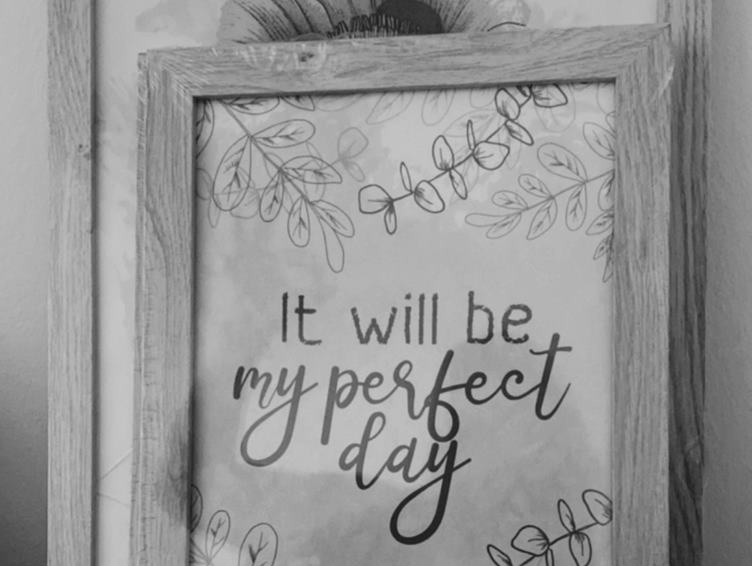 It will be
my perfect
day